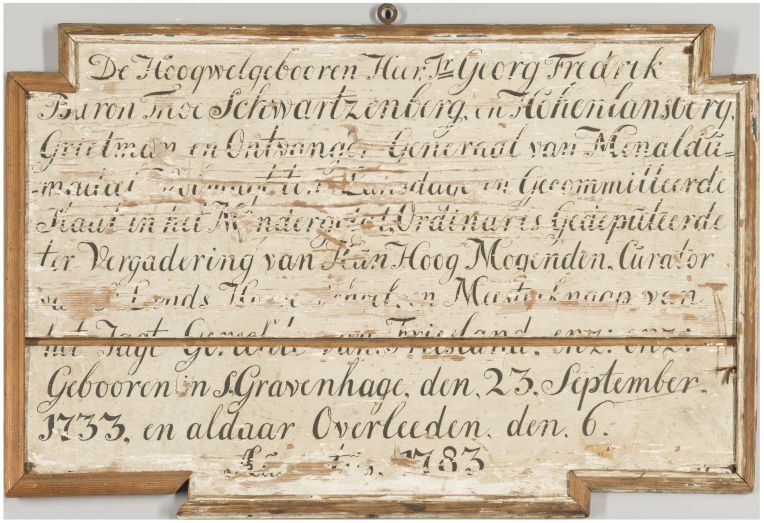 De Hoogwelgebooren Heer, Jr. Georg Fredrik
Baron Thoe Schwartzenberg, en Hohenlansberg,
Grietman en Ontvanger Generaal van Menaldu=
=madeel Volmagt ten Landsdage en Gecommitteerde
Staat in het Mindergetal, Ordinaris Gedeputeerde
ter Vergadering van Hun Hoog Mogenden, Curator
van 's Lands Hooge School, en Meesterknaap van
het Jagt Gerechte van Friesland, enz: enz:
Gebooren in s'Gravenhage, den, 23, September,
1733, en aldaar Overleeden, den, 6.
1783